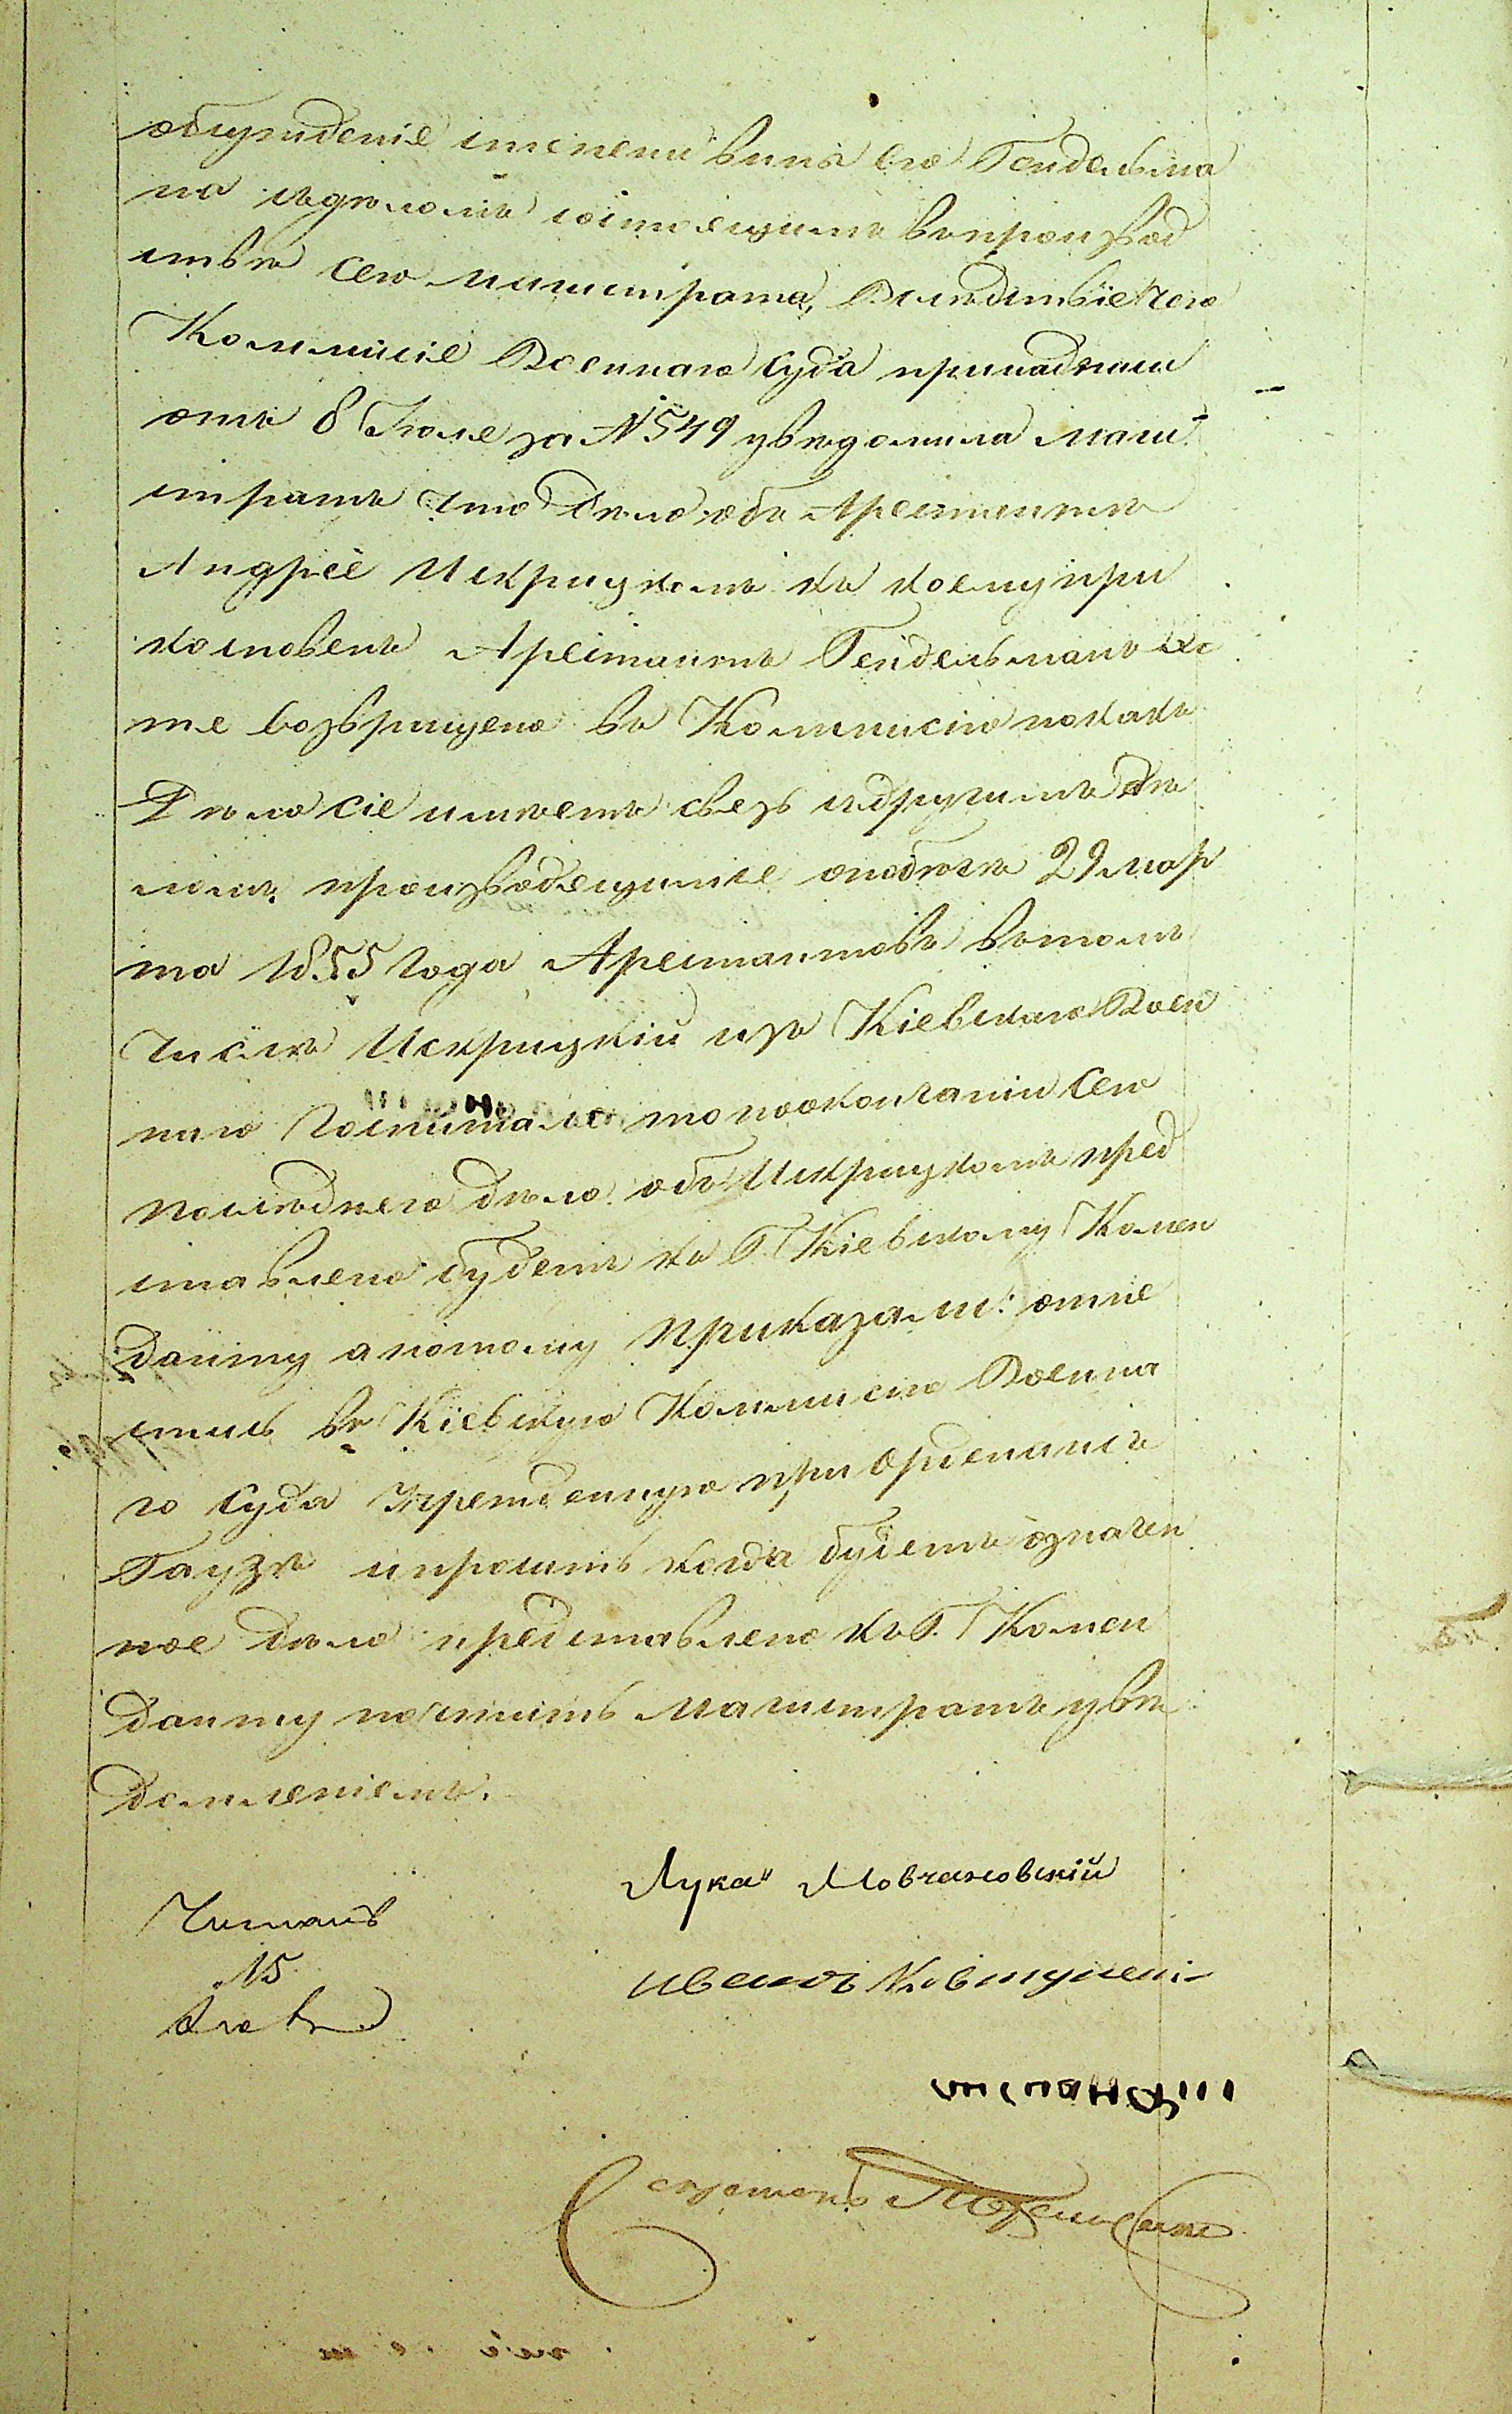 обсужденіе степени вины его Гендельма
на съдѣломъ состоящимъ въпроизвод
ствѣ сего магистрата, Вслѣдствіе чего
Коммисія Военнаго Суда принадписи
отъ 8 Іюля за № 549 увѣдомила маги
стратъ что дѣло объ Арестантѣ
Андреѣ Искрицкомъ къ коему при
косновенъ Арестантъ Гендельманъ
же возвращено въ Коммисію покакъ
Дѣло сіе имѣетъ связь сдругимъ дѣ
ломъ производящимся опобѣгѣ 29 мар
та 1855 года Арестантовъ втомъ
числѣ Искрицкій изъ Кіевскаго Воен
наго Госпиталя то поокончаніи сего
послѣдняго дѣло объ Искрицкомъ пред
ставлено будетъ къ Г. Кіевскому Комен
данту апотому Приказали: отне
стись въ Кіевскую Коммисію Военна
го Суда Учрежденную при Орденансъ
Гаузѣ ипросить когда будетъ означен
ное дѣло представлено къ Г. Комен
данту почтить магистратъ увѣ
домленіемъ.
Лука Мовчановскій
Читалъ
15
Иванъ
Секретарь